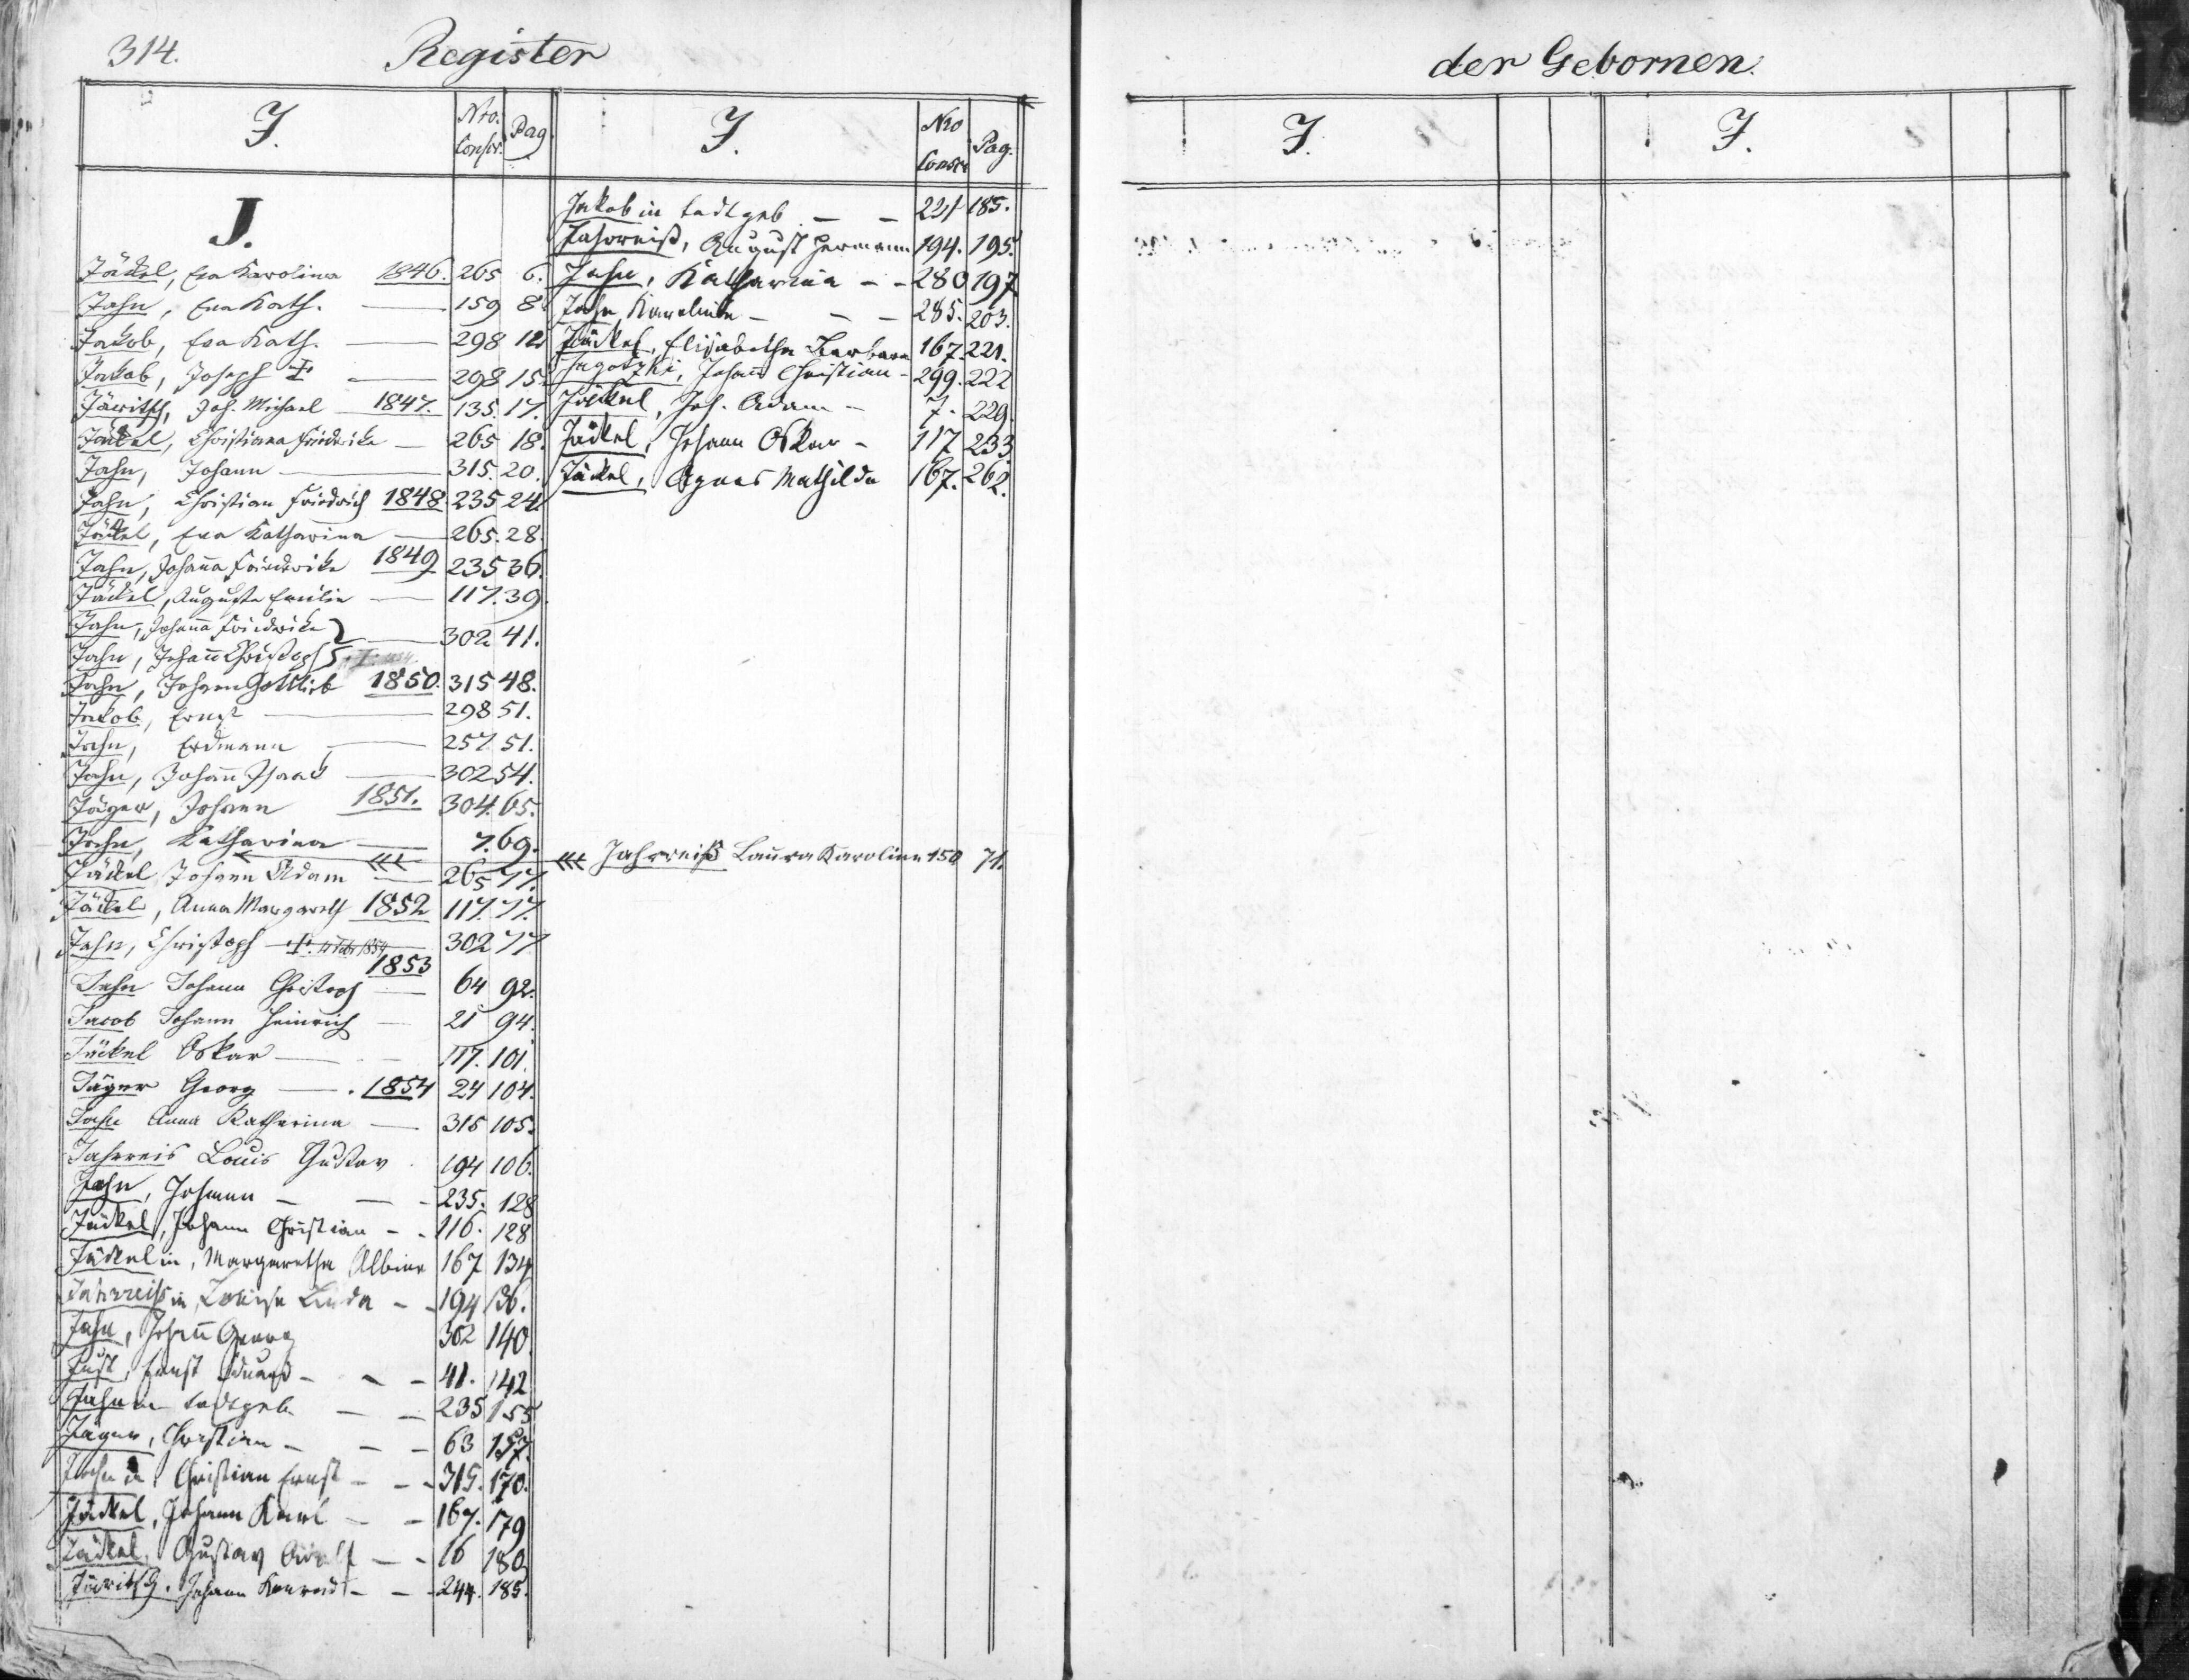 314. Register der Gebornen.
J. Nro. Conscr. Pag. J. Nro Conscr Pag. J. J.
J.
Jäckel, Eva Karolina 1846. 265 6.
Jahn, Eva Kath. — 159 8.
Jakob, Eva Kath. — 298 12
Jakob, Joseph — 298 15.
Järitsch, Joh. Michael 1847. 135. 17.
Jäckel, Christiana Friedricke — 265 18.
Jahn, Johann — 315. 20.
Jahn, Christian Friedrich 1848. 235 24.
Jäckel, Eva Katharina — 265. 28.
Jahn, Johanna Friedericke 1849 235 36.
Jäckel, Auguste Emilie — 117. 39.
Jahn, Johanna Friedricke
Jahn, Johann Christoph — 302 41.
Jahn, Johann Gottlieb 1850. 315 48.
Jakob, Ernst — 298 51.
Jahn, Erdmann — 257. 51.
Jahn, Johann Isaak — 302 54.
Jäger, Johann 1851. 304. 65.
Jahn, Katharina — 7. 69.
Jäckel Johann Adam — 265 77.
Jäckel, Anna Margareth 1852 117. 77.
Jahn, Christoph — 302 77
1853
Jahn Johann Christoph — 64 92.
Jacob Johann Heinrich — 21 94.
Jäckel Oskar — 117. 101.
Jäger Georg — . 1854 24 104.
Jahn Anna Katharina — 315 105.
Jahreis Louis Gustav 194 106.
Jahn, Johann — — 235. 128
Jäckel, Johann Christian - - 116. 128
Jäckel in, Margaretha Albine 167 134
Jahrreiß in, Louise Linda - - 194 136.
Jahn, Johann Georg 302 140.
Just, Ernst Eduard - - - 41. 142
Jahn in todtgeb. — — 235 155
Jäger, Christian - - - 63 157.
Jahn Christian Ernst - - - 315. 170.
Jäckel, Johann Karl - - 167. 179
Jäckel, Gustav Adolf — - 16 180
Järitsch. Johann Konrad - - - 244. 185.
Jakob in todtgeb — — 221 185.
Jahreiß, August Hermann 194. 195.
Jahn, Katharina - - 280 197
Jahn, Karoline - - - 285. 203.
Jäckel, Elisabetha Barbara 167. 221.
Jagotzki, Johann Christian - 299. 222
Jäckel, Joh. Adam - 7. 229.
Jäckel, Johann Oskar - 117 233
Jäckel, Agnes Mathilde 167. 262.
Jahrreiß Laura Karoline 150 71.